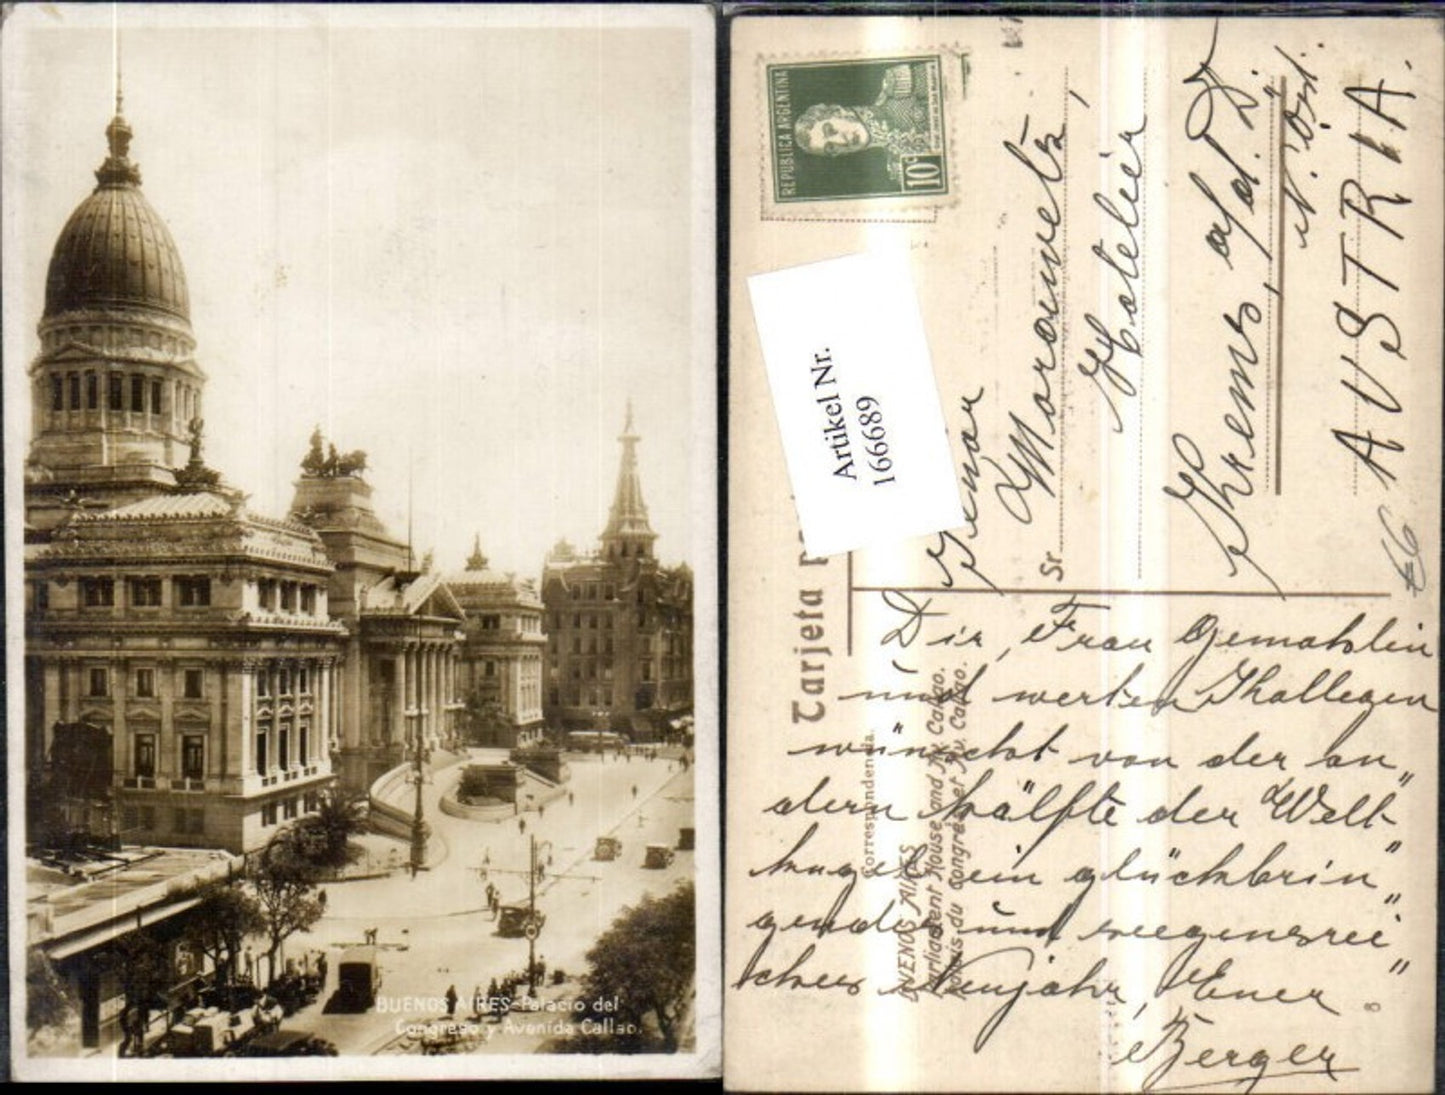 BUENOS AIRES-Palacio del
Congreso y Avenida Callao.
REPUBLICA ARGENTINA
10c
Artikel Nr.
166689
Tarjeta
Correspondencia.
BUENOS AIRES
Parliament House and Av. Callao.
Palais du Congrès et Av. Callao.
Senor
Sr.
Morawetz,
Hotelier
Krems, a/d. D.
N. Öst.
AVSTRIA.
Dir, Frau Gemahlin
und werten Kollegen
wünscht von der an„
dern Hälfte der Welt-
kugel ein glückbrin„
gendes und seegensrei„
ches Neujahr, Euer
Berger
8